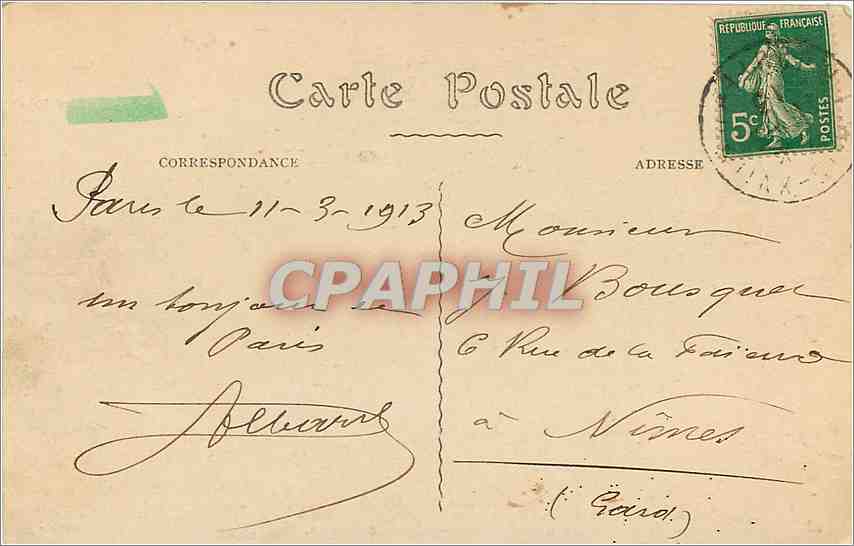 RÉPUBLIQUE FRANÇAISE
5c
POSTES
Carte Postale
CORRESPONDANCE
ADRESSE
Paris le 11-3-1913
un bonjour de
Paris
Monsieur
J Bousquet
6 Rue de la Faïence
à Nîmes
(Gard)
CPAPHIL